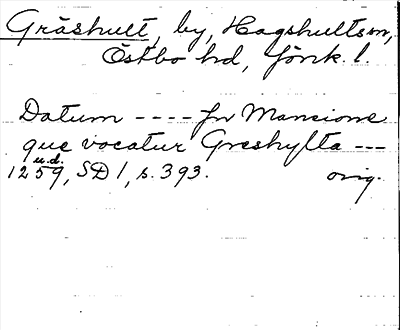 Gräshult, by, Hagshults sn,
Östbo hd, Jönk. l.
Datum ---- Jn Mansione
que vocatur Greshylta ---
u.d.
1259, SD 1, s. 393. orig.